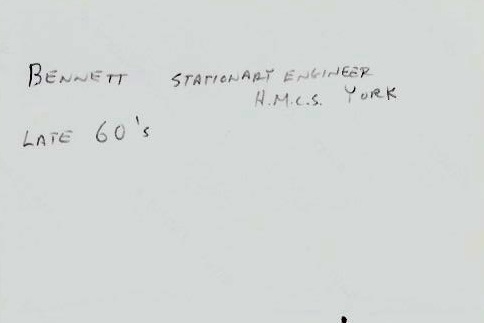 BENNETT STATIONARY ENGINEER
H.M.C.S. YORK
LATE 60's